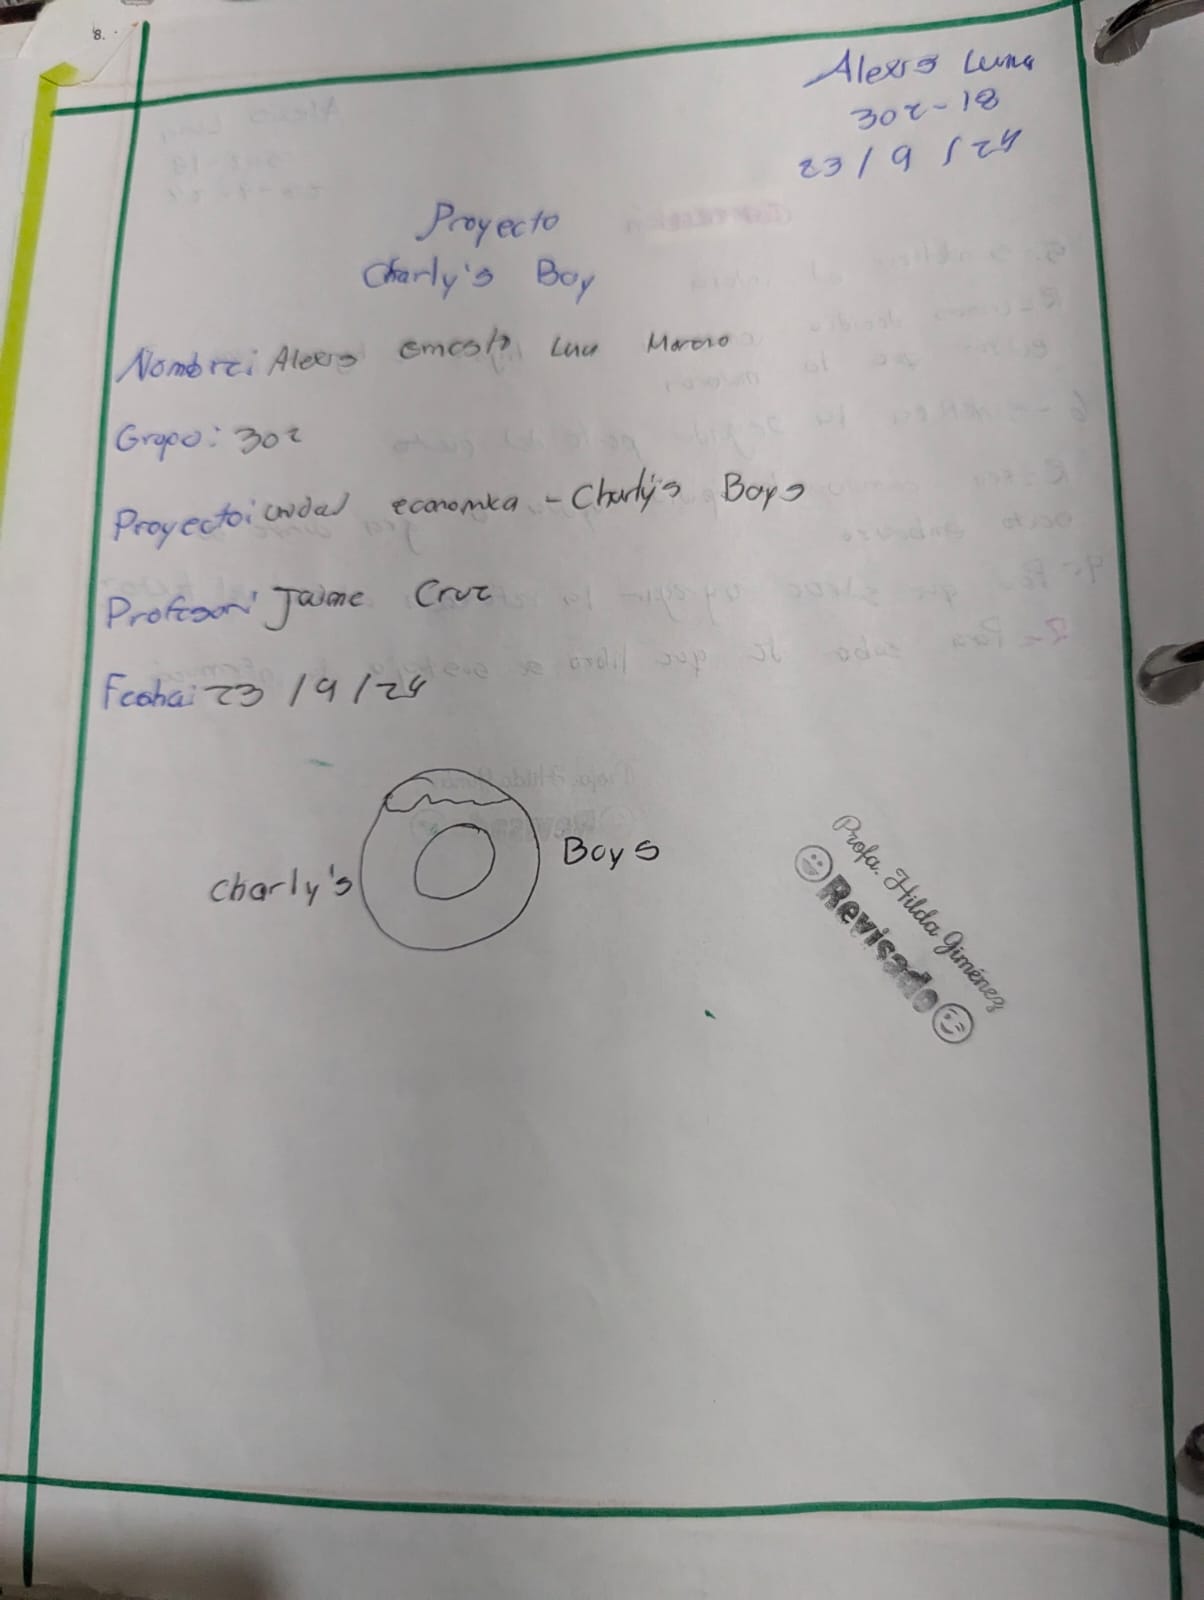 8.
Alexis Luna
302-18
23/9/24
Proyecto
Charly's Boy
Nombre: Alexis ernesto Luna Moreno
Grupo: 302
Proyecto: unidad economica - Charly's Boys
Profesor: Jaime Cruz
Fecha: 23/9/24
Charly's Boys
Profa. Hilda Giménez
Revisado